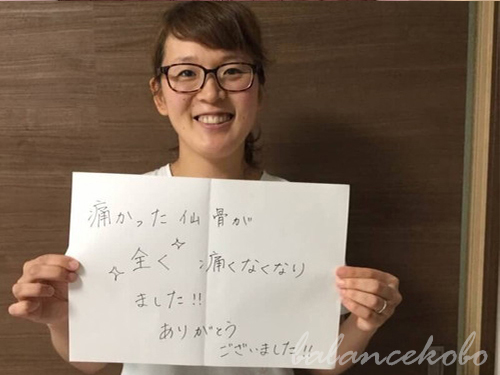 痛かった仙骨が
全く痛くなくなり
ました!!
ありがとう
ございました!!
balancekobo